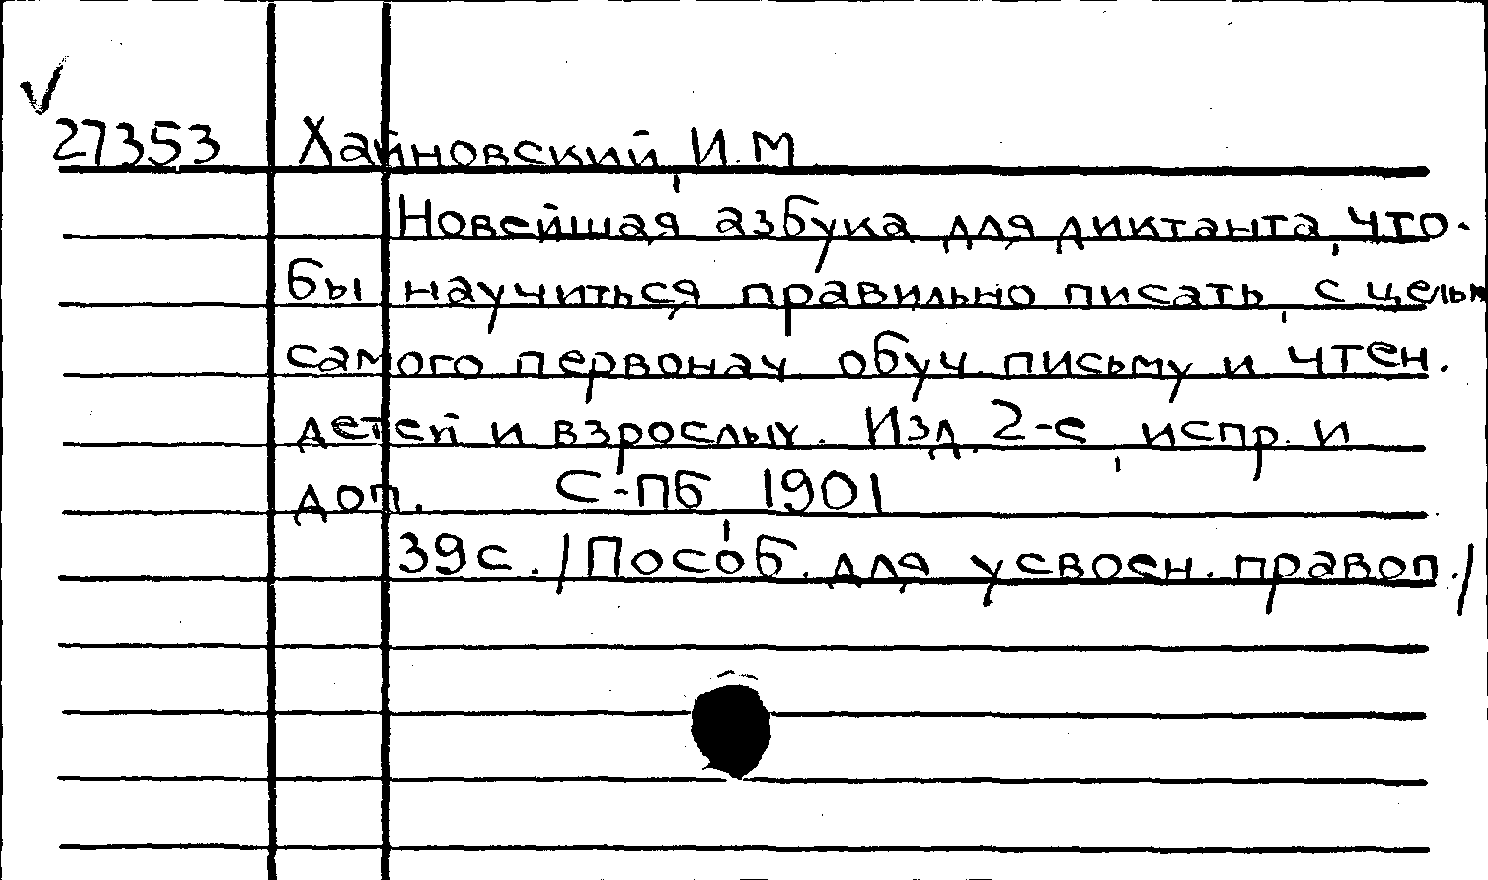 27353 Хайновский, И.М.
Новейшая азбука для диктанта, что-
бы научиться правильно писать, с целью
самого первонач. обуч. письму и чтен.
детей и взрослых. Изд. 2-е, испр. и
доп. С-Пб, 1901
39с. /Пособ. для усвоен. правоп./